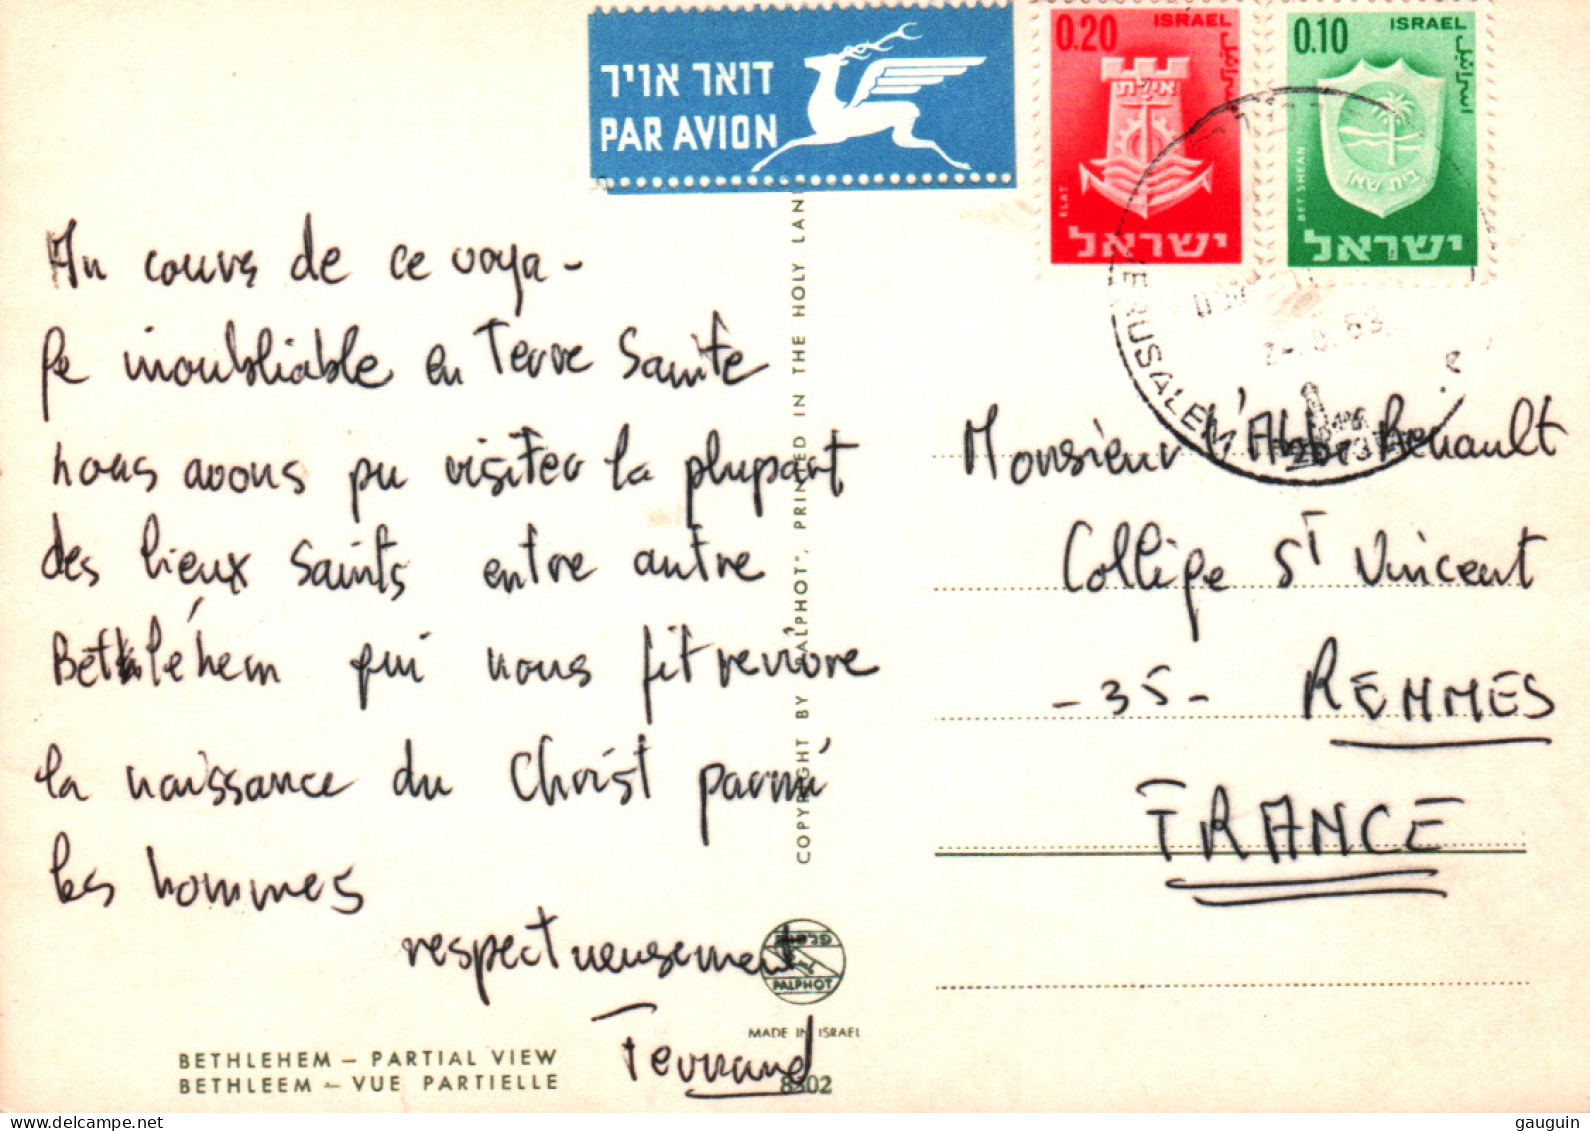 דואר אויר
PAR AVION
0.20 ISRAEL
إسرائيل
אילת
ELAT
ישראל
0.10 ISRAEL
إسرائيل
בית שאן
BET SHEAN
ישראל
JERUSALEM
Au cours de ce voya-
ge inoubliable en Terre Sainte
nous avons pu visiter la plupart
des lieux Saints entre autre
Bethléhem qui nous fit revivre
la naissance du Christ parmi
les hommes
respectueusement
Fernand
COPYRIGHT BY "PALPHOT", PRINTED IN THE HOLY LAND
Monsieur l'Abbé Renault
Collège St Vincent
-35- RENNES
FRANCE
PALPHOT
MADE IN ISRAEL
8302
BETHLEHEM - PARTIAL VIEW
BETHLEEM - VUE PARTIELLE
gauguin